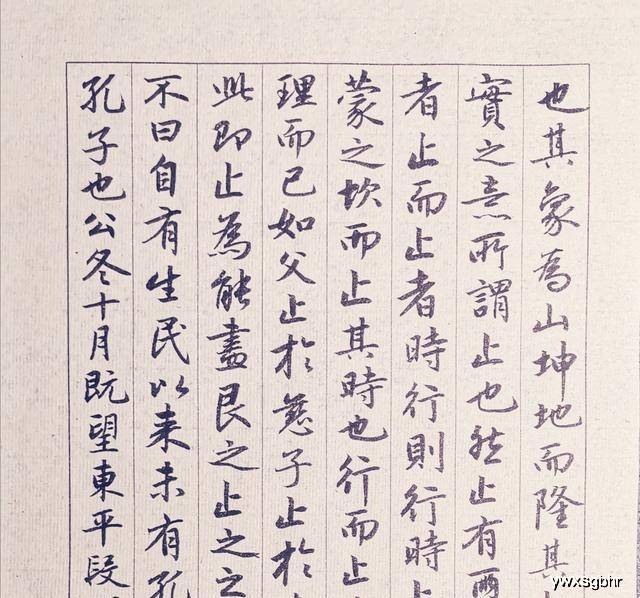 也其象為山坤地而隆其
實之意所謂止也然止有兩
者止而止者時行則行時止
蒙之坎而止其時也行而止
理而已如父止於慈子止於
此即止為能盡艮之止之之
不曰自有生民以来未有孔
孔子也公冬十月既望東平段
ywxsgbhr